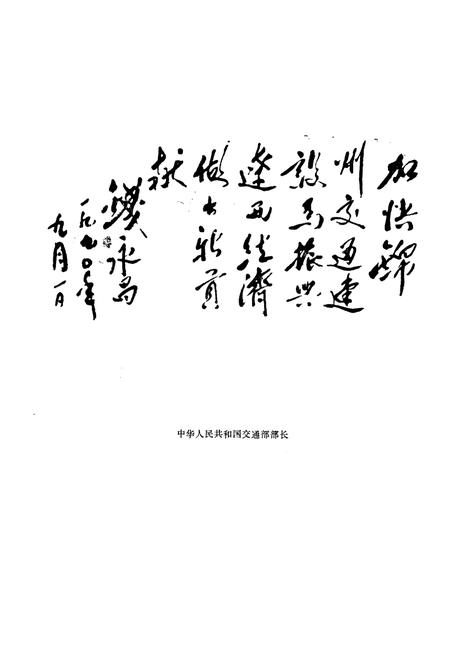 加快錦
州交通建
設为振興
遼西经濟
做出新貢
献
錢永昌
一九九〇年
九月一日
中华人民共和国交通部部长